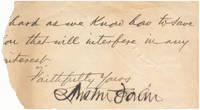 hard as we know how to save
on that will interfere in any
interest.
Faithfully Yours